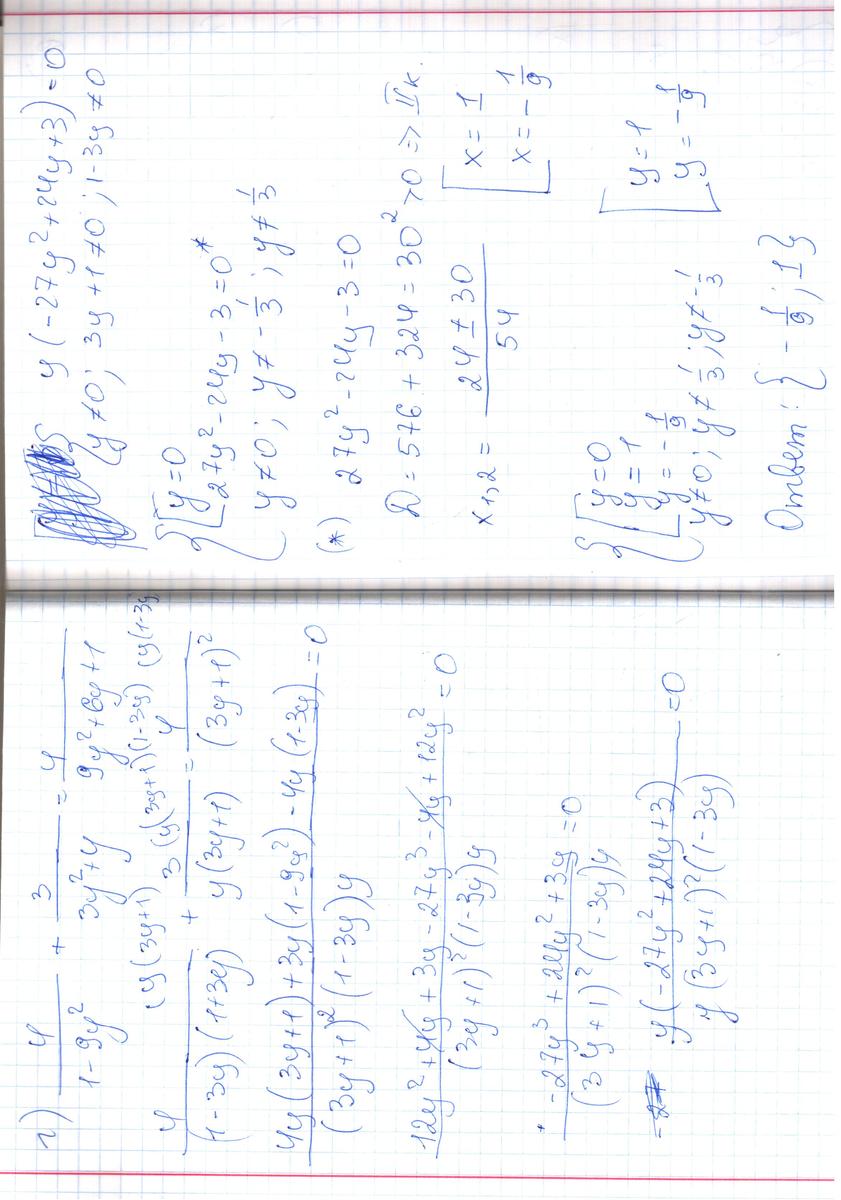 г) 4/(1-9y²) + 3/(3y²+y) = 4/(9y²+6y+1)
4 (y(3y+1)/(1-3y)(1+3y) + 3 (y(3y+1)(1-3y)/y(3y+1) = 4 (y(1-3y/(3y+1)²
4y(3y+1)+3y(1-9y²)-4y(1-3y)/(3y+1)²(1-3y)y =0
12y²+4y+3y-27y³-4y+12y²/(3y+1)²(1-3y)y =0
-27y³+24y²+3y/(3y+1)²(1-3y)y =0
y(-27y²+24y+3)/y(3y+1)²(1-3y) =0
{ y(-27y²+24y+3)=0
y≠0; 3y+1≠0; 1-3y≠0
{ [ y=0
27y²-24y-3=0*
y≠0; y≠-1/3; y≠1/3
(*) 27y²-24y-3=0
D=576+324=30²>0 => IIк.
x1,2 = 24±30/54 [ x=1
x=-1/9
{ [ y=0
y=1
y=-1/9
y≠0; y≠1/3; y≠-1/3
[ y=1
y=-1/9
Ответ: {-1/9; 1}